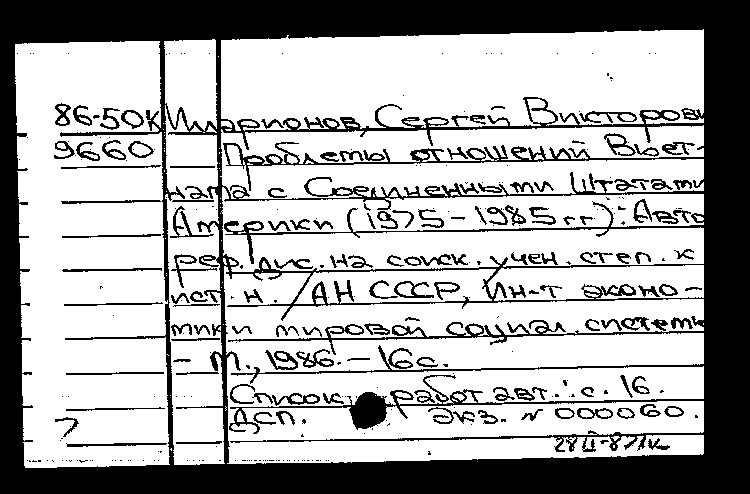 86-50к Илларионов, Сергей Викторови
9660 Проблемы отношений Вьет-
нама с Соединенными Штатами
Америки (1975-1985 гг): Авто
реф. дис. на соиск. учен. степ. к
ист. н. / АН СССР, Ин-т эконо-
мики мировой социал. системы
- М., 1986. - 16 с.
Список работ авт.: с. 16.
Дсп. Экз. N 000060.